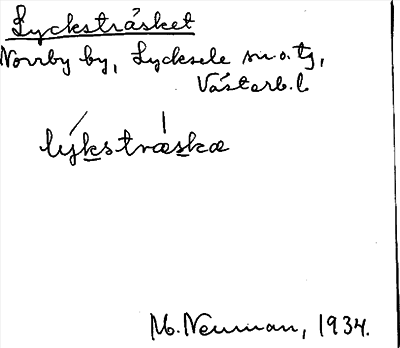 Lycksträsket
Norrby by, Lycksele sn. o. tg,
Västerb. l.
lykstræskæ
M. Neuman, 1934.